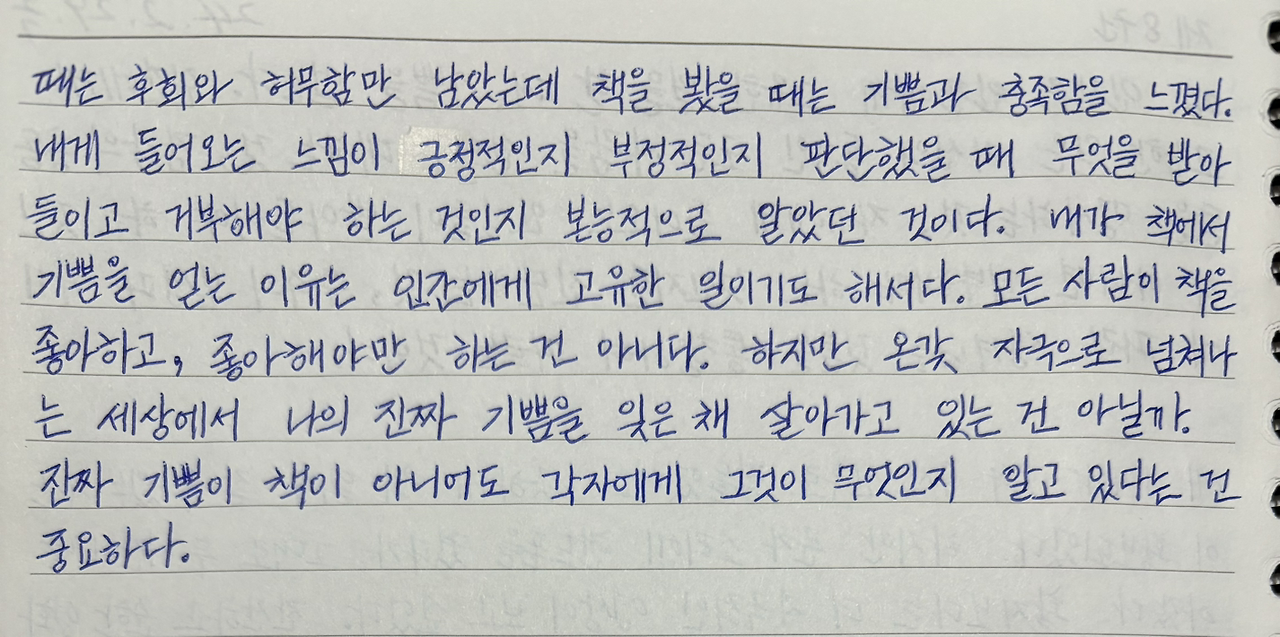 때는 후회와 허무함만 남았는데 책을 봤을 때는 기쁨과 충족함을 느꼈다.
내게 들어오는 느낌이 긍정적인지 부정적인지 판단했을 때 무엇을 받아
들이고 거부해야 하는 것인지 본능적으로 알았던 것이다. 내가 책에서
기쁨을 얻는 이유는, 인간에게 고유한 일이기도 해서다. 모든 사람이 책을
좋아하고, 좋아해야만 하는 건 아니다. 하지만 온갖 자극으로 넘쳐나
는 세상에서 나의 진짜 기쁨을 잊은 채 살아가고 있는 건 아닐까.
진짜 기쁨이 책이 아니어도 각자에게 그것이 무엇인지 알고 있다는 건
중요하다.